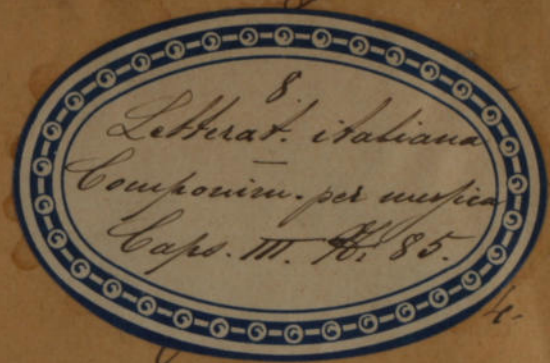 8.
Letterat. italiana
Componim. per musica
Caps. III. 85.
4.